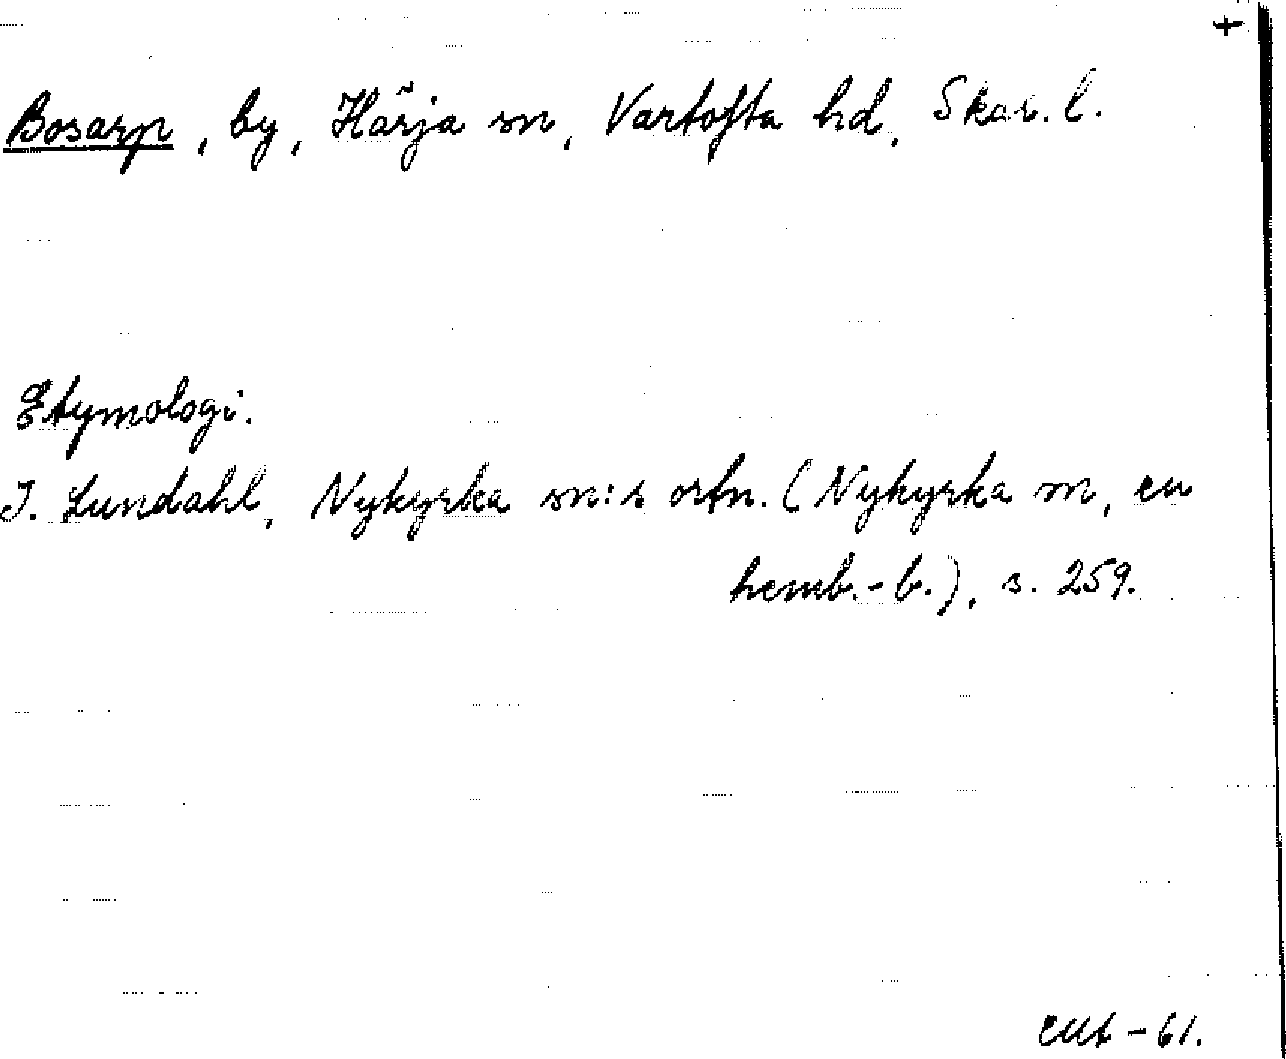 +
Bosarp, by, Härja sn, Vartofta hd, Skar. l.
Etymologi.
I. Lundahl, Nykyrka sn:s ortn. (Nykyrka sn, en
hemb.-b.), s. 259.
-61.